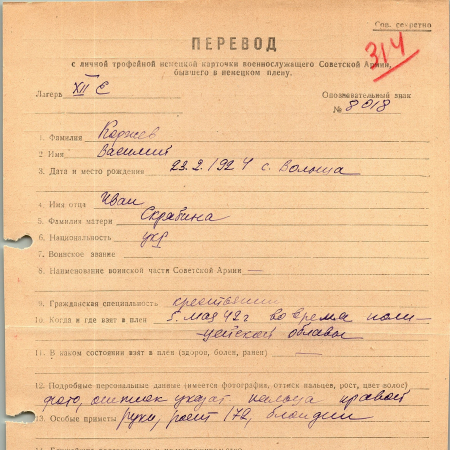 Сов. секретно
314
ПЕРЕВОД
с личной трофейной немецкой карточки военнослужащего Советской Армии,
бывшего в немецком плену.
Лагерь XII C
Опознавательный знак
№ 8018
1. Фамилия Коржев
2. Имя Василий
3. Дата и место рождения 23.2.1924 с. Вольша
4. Имя отца Иван
5. Фамилия матери Скрябина
6. Национальность укр
7. Воинское звание
8. Наименование воинской части Советской Армии —
9. Гражданская специальность крестьянин
10. Когда и где взят в плен 5. мая 42 г во время поли-
цейской облавы
11. В каком состоянии взят в плен (здоров, болен, ранен)
12. Подробные персональные данные (имеется фотография, оттиск пальцев, рост, цвет волос)
фото, оттиск указат пальца правой
13. Особые приметы руки, рост 172, блондин